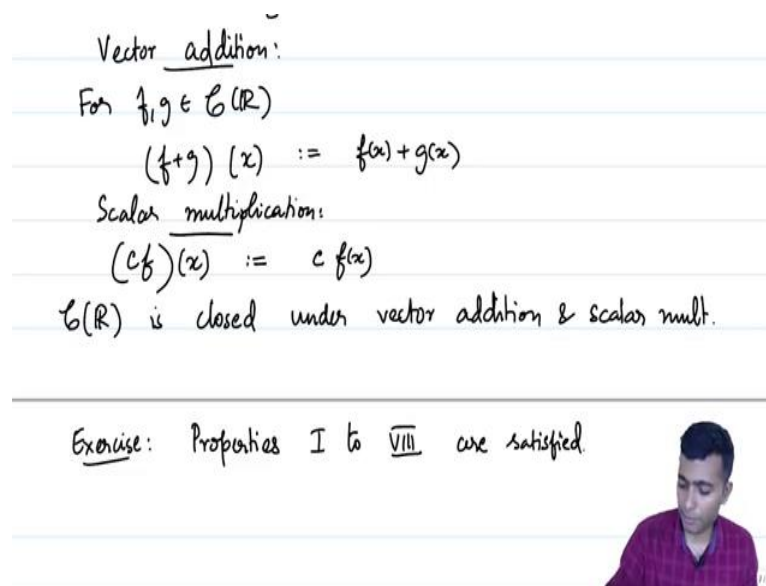 Vector addition:
For f, g ∈ 𝒞(ℝ)
(f+g)(x) := f(x) + g(x)
Scalar multiplication:
(cf)(x) := c f(x)
𝒞(ℝ) is closed under vector addition & scalar mult.
Exercise: Properties I to VIII are satisfied.